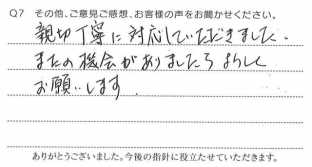 Q7 その他、ご意見ご感想、お客様の声をお聞かせください。
親切丁寧に対応していただきました.
またの機会がありましたらよろしく
お願いします
ありがとうございました。今後の指針に役立たせていただきます。